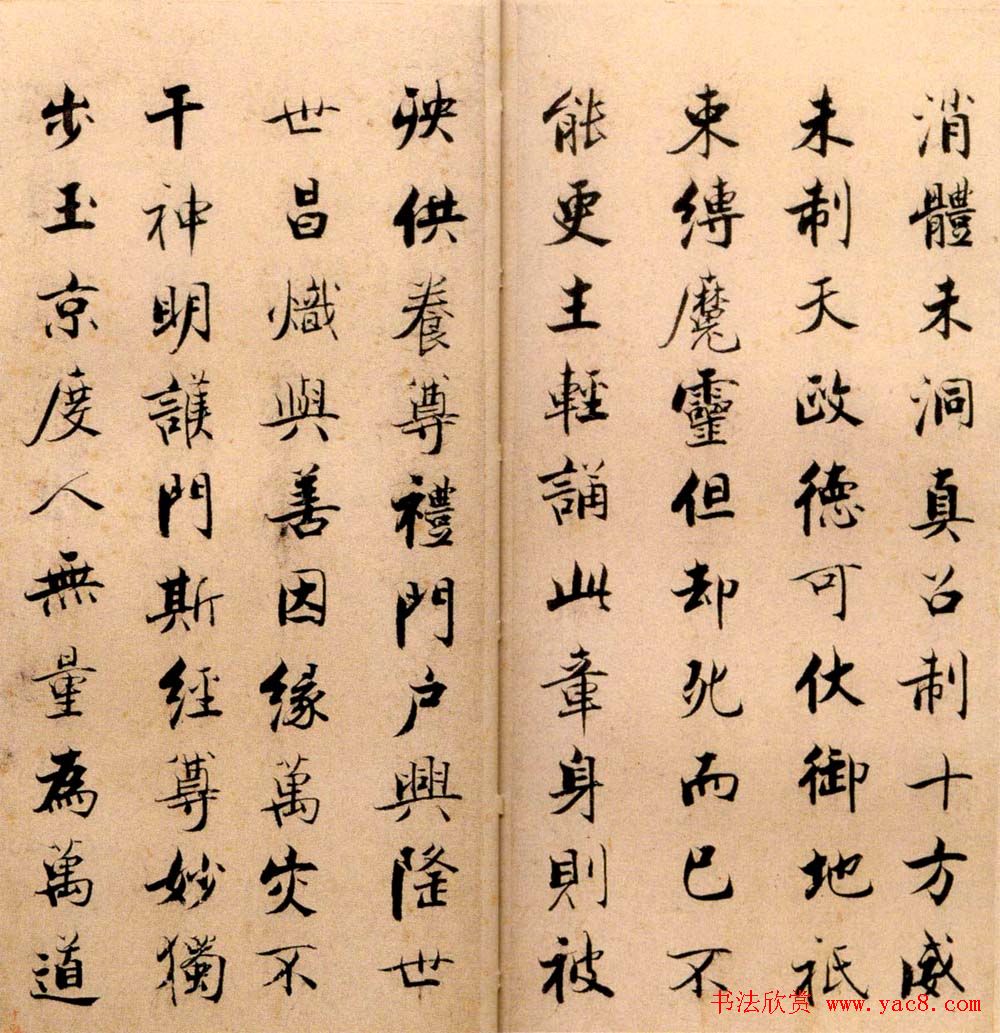 消體未洞真召制十方威
未制天政德可伏御地祇
束縛魔靈但却死而已不
能更生輕誦此章身則被
殃供養尊禮門戶興隆世
世昌熾與善因緣萬灾不
干神明護門斯經尊妙獨
步玉京度人無量為萬道
书法欣赏 www.yac8.com